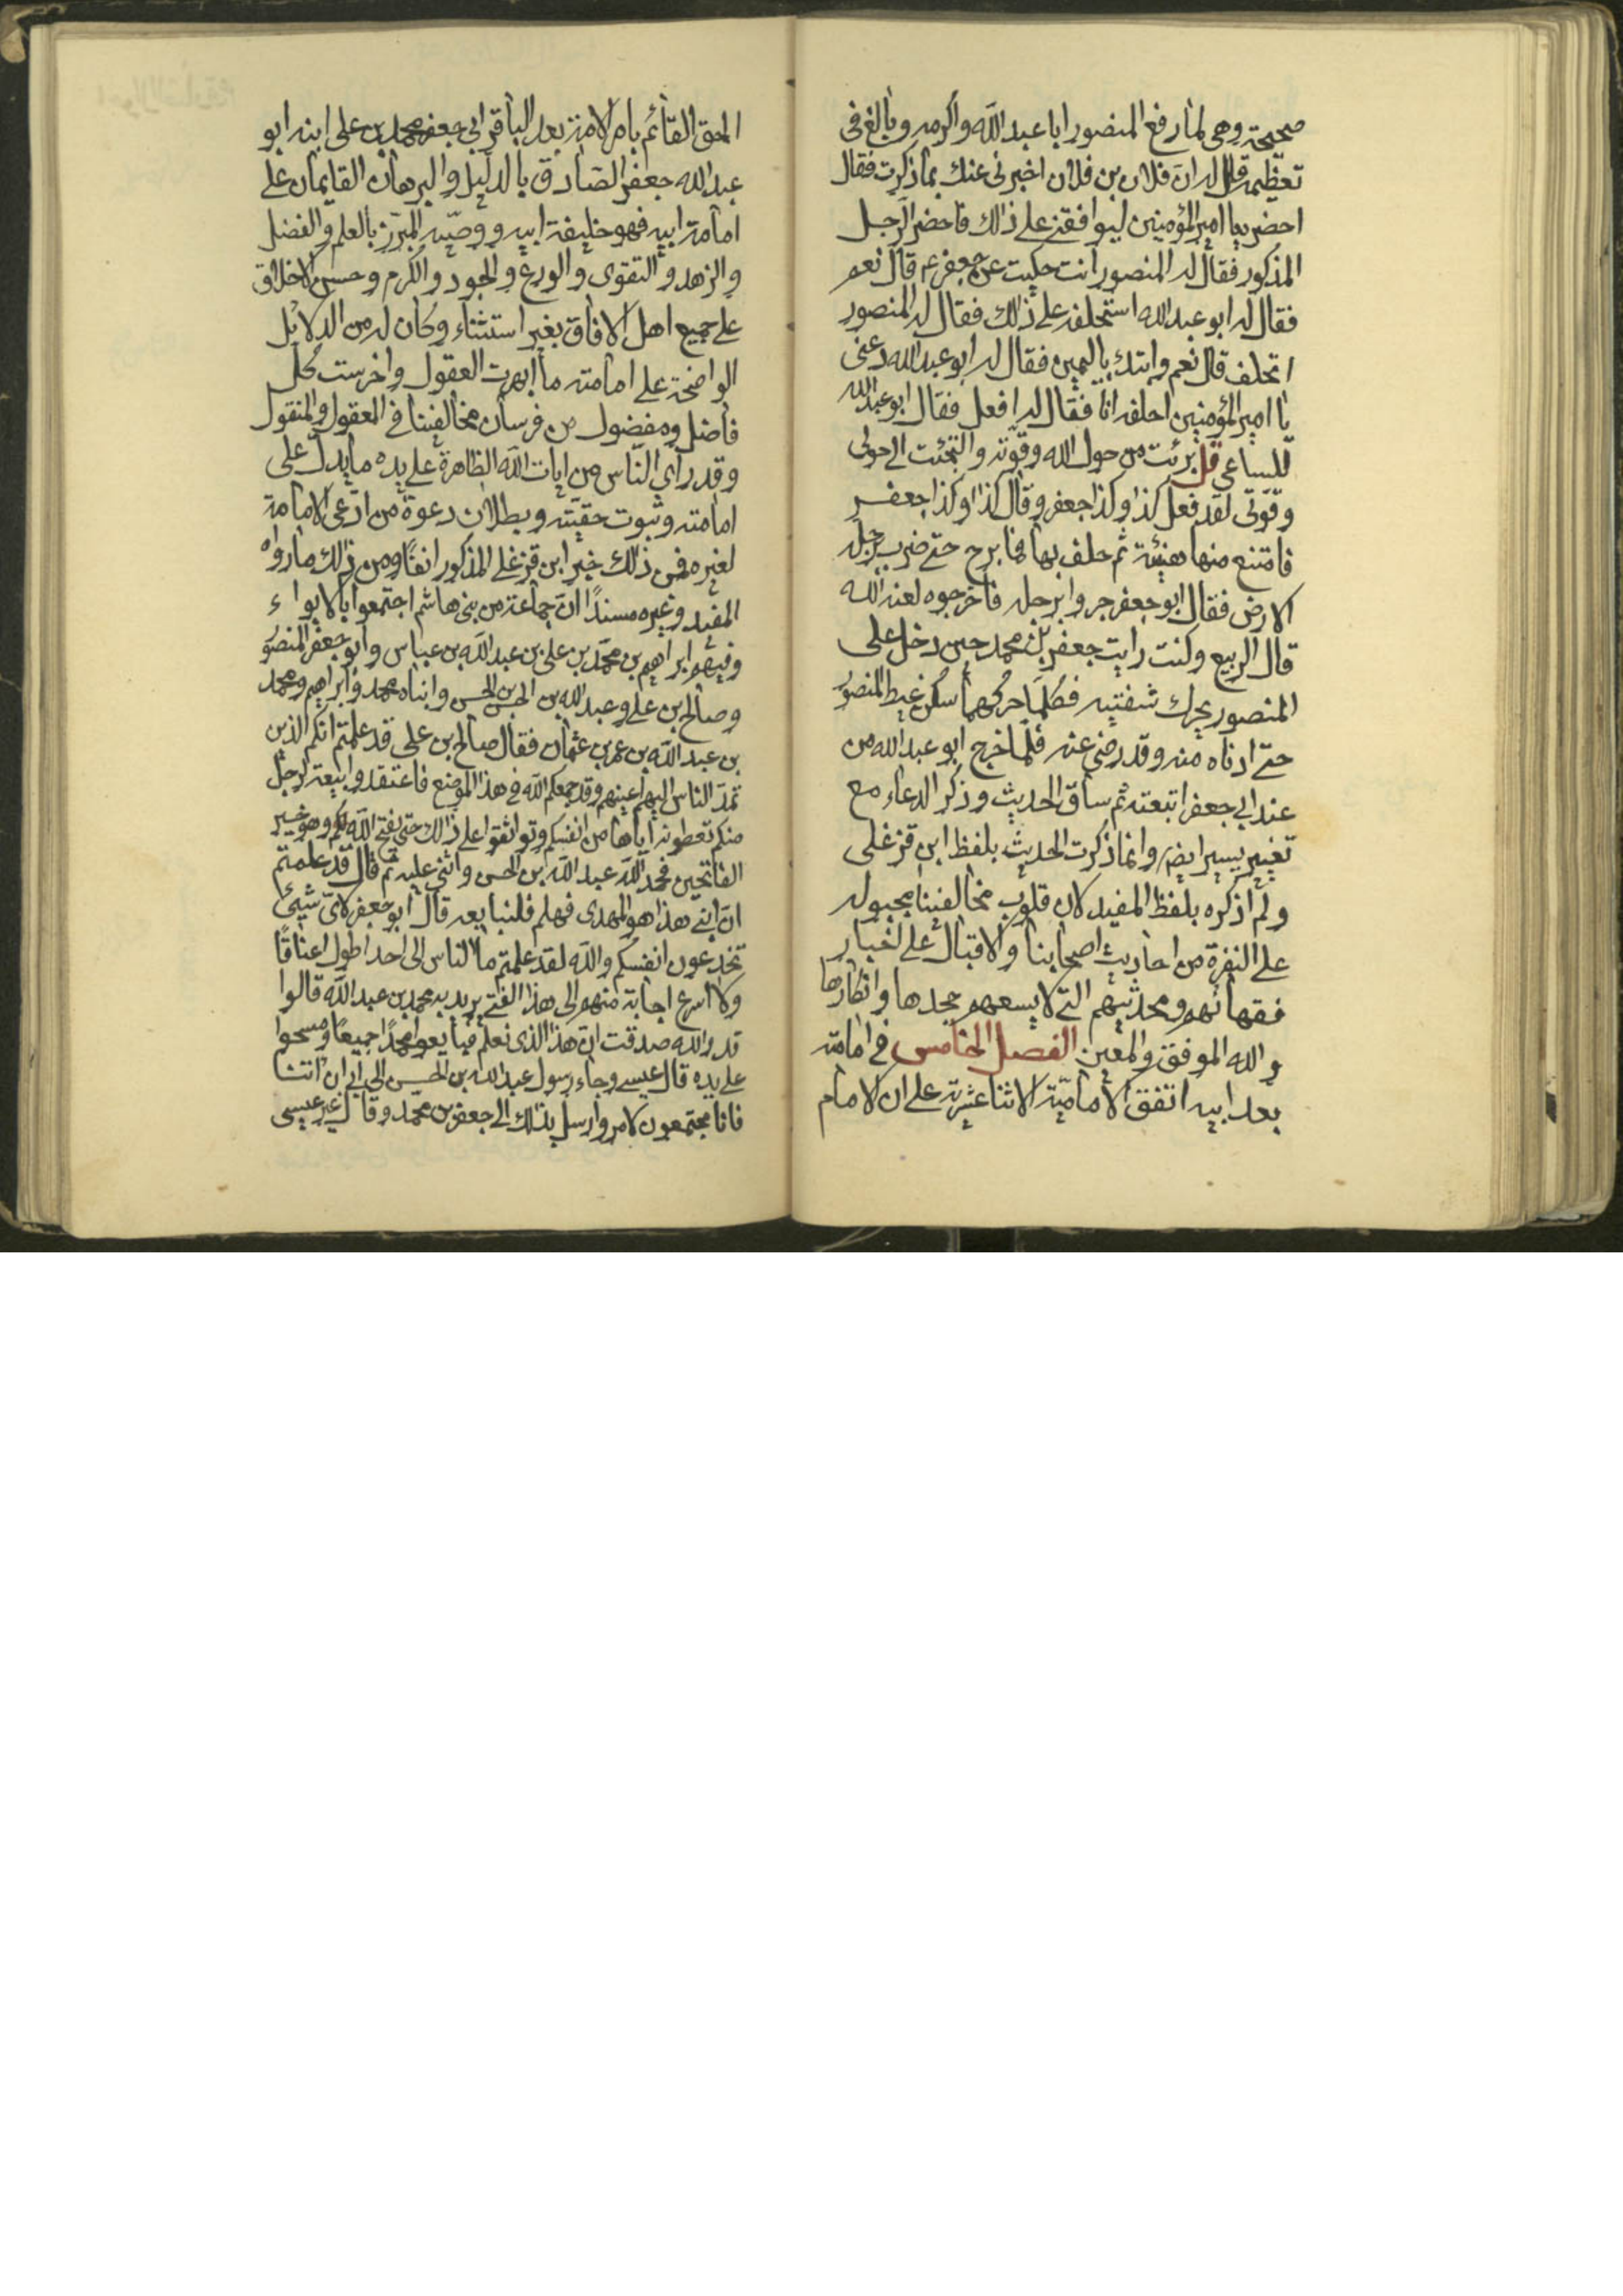 صحيحة وهي لما رفع المنصور ابا عبد الله واكرمه وبالغ في
تعظيمه قال له ان فلان بن فلان اخبرني عنك بما ذكرت فقال
احضر يا امير المؤمنين ليوافقني على ذلك فاحضر الرجل
المذكور فقال له المنصور انت حكيت عن جعفر عم قال نعم
فقال له ابو عبد الله استحلفه على ذلك فقال له المنصور
اتحلف قال نعم وابتدا باليمين فقال له ابو عبد الله دعني
يا امير المؤمنين احلفه انا فقال له افعل فقال ابو عبد الله
للساعي قل برئت من حول الله وقوته والتجئت الى حولي
وقوتي لقد فعل كذا وكذا جعفر وقال كذا وكذا جعفر
فامتنع منها هنيئة ثم حلف بها فما برح حتى ضرب برجله
الارض فقال ابو جعفر جروا برجله فاخرجوه لعنه الله
قال الربيع وكنت رايت جعفر بن محمد حين دخل على
المنصور يحرك شفتيه فكلما حركهما سكن غيظ المنصور
حتى ادناه منه وقد رضي عنه فلما خرج ابو عبد الله من
عند ابي جعفر اتبعته ثم ساق الحديث وذكر الدعاء مع
تغيير يسير ايضر وانما ذكرت الحديث بلفظ ابن قزغلي
ولم اذكره بلفظ المفيد لان قلوب مخالفينا مجبوله
على النفرة من احاديث اصحابنا والاقبال على اخبار
فقهائهم ومحدثيهم التي لا يسعهم جحدها وانكارها
والله الموفق والمعين الفصل الخامس في امامته
بعد ابيه اتفق الامامية الاثنا عشرية على ان الامام
الحق القائم بامر الامة بعد الباقر ابي جعفر محمد بن علي ابنه ابو
عبد الله جعفر الصادق بالدليل والبرهان القايمان على
امامة ابيه فهو خليفة ابيه ووصيه المبرز بالعلم والفضل
والزهد والتقوى والورع والجود والكرم وحسن الاخلاق
على جميع اهل الافاق بغير استثناء وكان له من الدلائل
الواضحة على امامته ما ابهرت العقول واخرست كل
فاضل ومفضول من فرسان مخالفينا في المعقول والمنقول
وقد راي الناس من ايات الله الظاهرة على يده ما يدل على
امامته وثبوت حقيته وبطلان دعوة من ادعى الامامة
لغيره فمن ذلك خبر ابن قزغلي المذكور انفا ومن ذلك ما رواه
المفيد وغيره مسندا ان جماعة من بني هاشم اجتمعوا بالابواء
وفيهم ابراهيم بن محمد بن علي بن عبد الله بن عباس وابو جعفر المنصور
وصالح بن علي وعبد الله بن الحسن بن الحسن وابناه محمد وابراهيم ومحمد
بن عبد الله بن عمر بن عثمان فقال صالح بن علي قد علمتم انكم الذين
تمد الناس اليهم اعينهم وقد جمعكم الله في هذا الموضع فاعتقدوا بيعة لرجل
منكم تعطونه اياها من انفسكم وتواثقوا على ذلك حتى يفتح الله لكم وهو خير
الفاتحين فحمد الله عبد الله بن الحسن واثنى عليه ثم قال قد علمتم
ان ابني هذا هو المهدي فهلم فلنبايعه قال ابو جعفر لاي شيئ
تخدعون انفسكم والله لقد علمتم ما الناس الى احد اطول اعناقا
ولا اسرع اجابة منهم الى هذا الفتى يريد به محمد بن عبد الله قالوا
قد والله صدقت ان هذا الذي نعلم فبايعوا محمدا جميعا ومسحوا
على يده قال عيسى وجاء رسول عبد الله بن الحسن الى ابي ان ائتنا
فانا مجتمعون لامر وارسل بذلك الى جعفر بن محمد وقال غير عيسى